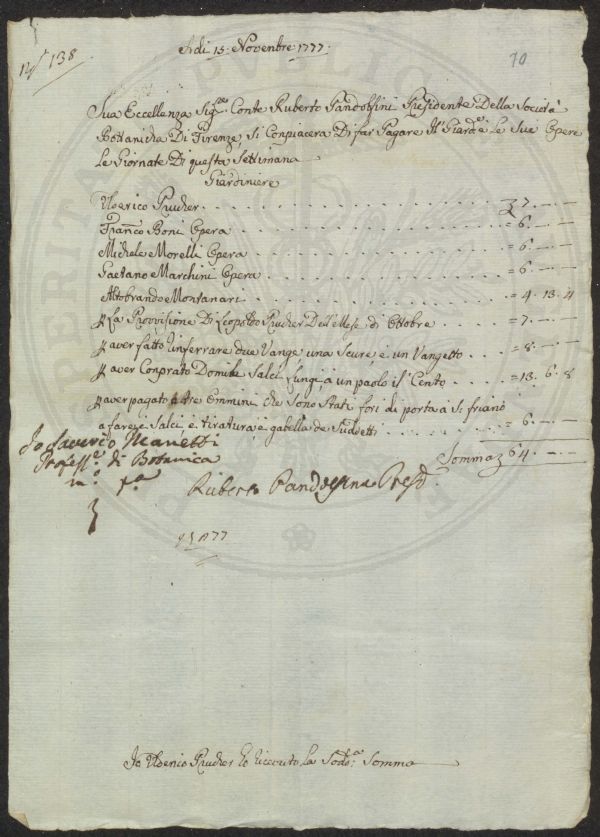 N.° 138
Adi 15: Novembre 1777:
70
Sua Eccellenza Sig.re Conte Ruberto Pandolfini Presidente Della Società
Bottanicha Di Firenze Si Conpiacera Di far Pagare Il Giard.e e Le Sue Opere
Le Giornate Di questa Settimana
Giardiniere
Ulderico Prucher . . . 7. — . —
Franc.o Boni Opera . . . = 6. — . —
Michele Morelli Opera . . . = 6. — . —
Gaetano Marchini Opera . . . = 6. — . —
Altobrando Montanari . . . = 4. 13. 4
p La Provisione Di Leopolto Prucher Dell Mese di Ottobre . . . = 7. — . —
p aver fatto inferrare due Vange, una Scure, e un Vangetto . . . = 8. — . —
p aver Conprato Salci Lungi, a un paolo il Cento . . . = 13. 6. 8
p aver pagato a tre Ommini che Sono Stati fori di porta a S: friano
a fare e Salci, e tiratura e gabella de Sudetti . . . = 6. — . —
Somma 64. — . —
Io Saverio Manetti
Profess.e di Botanica
m.o p.a
Ruberto Pandolfini Presid.
Io Ulderico Prucher ho riceuto La Sod.a Somma